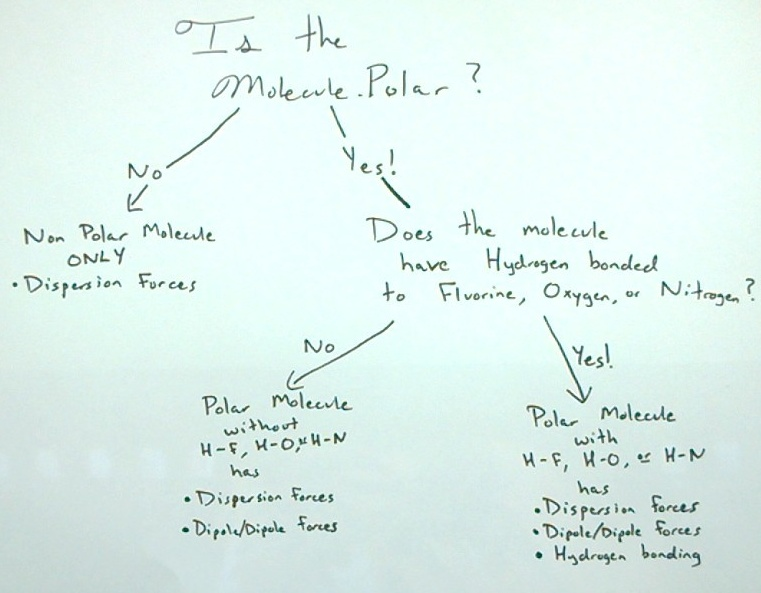 Is the
Molecule Polar?
No
Yes!
Non Polar Molecule
ONLY
• Dispersion Forces
Does the molecule
have Hydrogen bonded
to Fluorine, Oxygen, or Nitrogen?
No
Yes!
Polar Molecule
without
H-F, H-O, or H-N
has
• Dispersion forces
• Dipole/Dipole forces
Polar Molecule
with
H-F, H-O, or H-N
has
• Dispersion forces
• Dipole/Dipole forces
• Hydrogen bonding